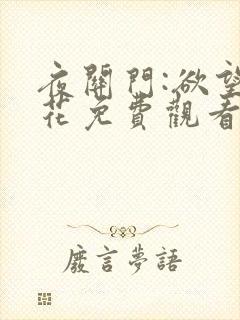 夜關門:欲望
花免費觀看
廢言夢語